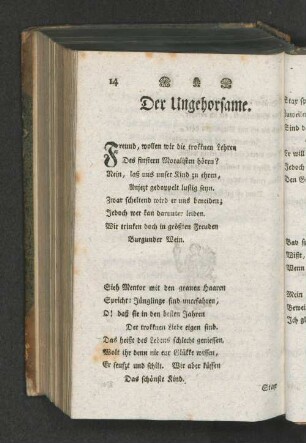 14
Der Ungehorsame.
Freund, wollen wir die troknen Lehren
Des finstern Moralisten hören?
Nein, laß uns unser Kind zu ehren,
Anjezt gedoppelt lustig seyn.
Zwar scheltend wird er uns beneiden;
Jedoch wer kan darunter leiden.
Wir trinken doch in größten Freuden
Burgunder Wein.
Sieh Mentor mit den grauen Haaren
Spricht: Jünglinge sind unerfahren,
O! daß sie in den besten Jahren
Der troknen Liebe eigen sind.
Das heißt des Lebens schlecht geniessen.
Wollt ihr denn nie eur Glükke wissen,
Er seufzt und schilt. Wir aber küssen
Das schönste Kind.
Stax